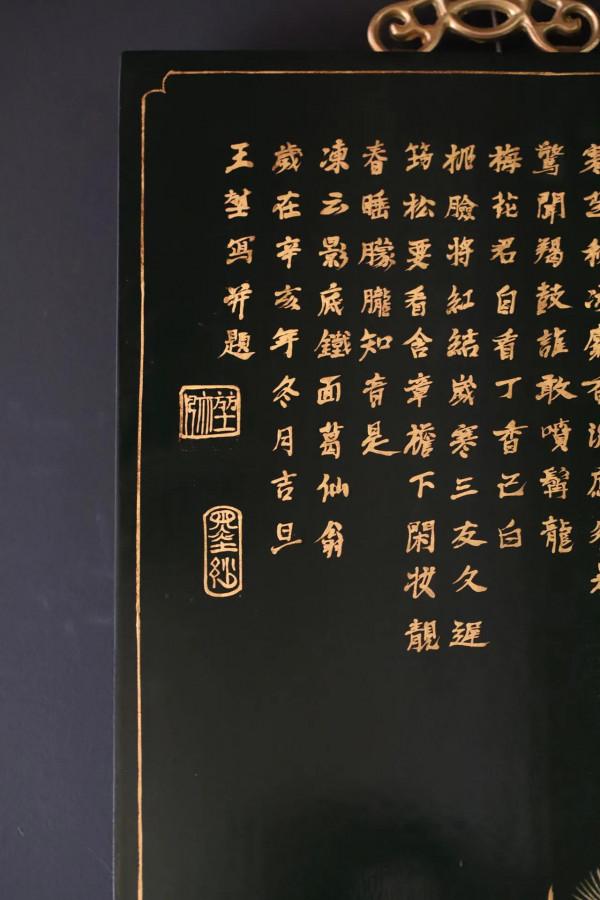 驚聞羯鼓誰敢噴髯龍
梅花君自看丁香已白
桃臉將紅結歲寒三友久遲
筠松要看含章檐下閑妝靚
春睡朦朧知音是
凍云影底鐵面葛仙翁
歲在辛亥年冬月吉旦
王堃寫并題